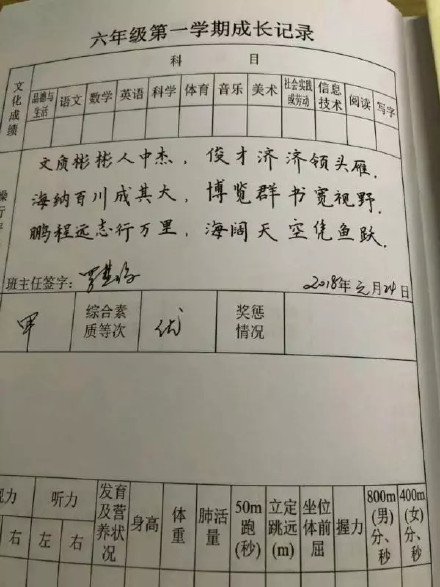 六年级第一学期成长记录
科 目
文化成绩
品德与生活 语文 数学 英语 科学 体育 音乐 美术 社会实践或劳动 信息技术 阅读 写字
文质彬彬人中杰，俊才济济领头雁。
海纳百川成其大，博览群书宽视野。
鹏程远志行万里，海阔天空凭鱼跃。
班主任签字：
2018年元月24日
甲 综合素质等次 优 奖惩情况
力 听力 发育及营养状况 身高 体重 肺活量 50m跑(秒) 立定跳远(m) 坐位体前屈 握力 800m(男)分、秒 400m(女)分、秒
右 左 右